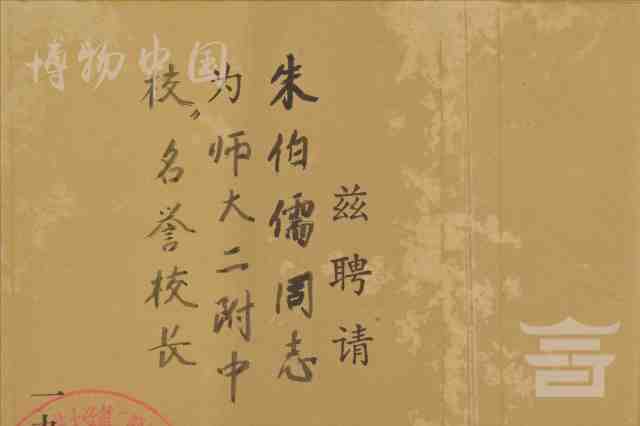 博物中国
兹聘请
朱伯儒同志
为师大二附中
校〃名誉校长
一九